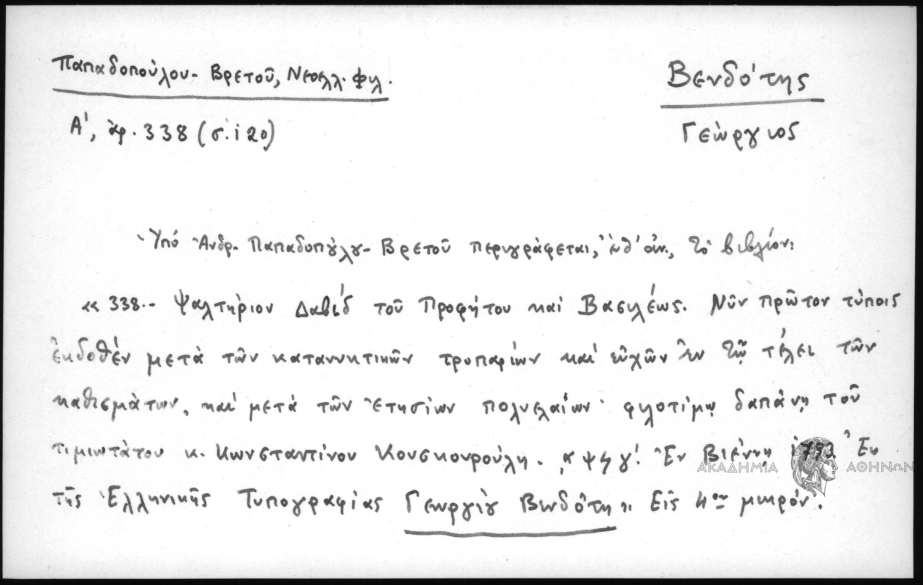 Παπαδοπούλου-Βρετοῦ, Νεοελλ. Φιλ.
Βενδότης
Α', ἀρ. 338 (σ. 120)
Γεώργιος
Ὑπό Ἀνδρ. Παπαδοπούλου-Βρετοῦ περιγράφεται, ἐνθ' ἀν., τό βιβλίον:
«338.- Ψαλτήριον Δαβίδ τοῦ Προφήτου καί Βασιλέως. Νῦν πρῶτον τύποις
ἐκδοθέν μετά τῶν κατανυκτικῶν τροπαρίων καί εὐχῶν ἐν τῷ τέλει τῶν
καθισμάτων, καί μετά τῶν ἐτησίων πολυελαίων· φιλοτίμῳ δαπάνῃ τοῦ
τιμιωτάτου κ. Κωνσταντίνου Κουσκουρούλη. ͵αψϟγ'. Ἐν Βιέννῃ 1793 Ἐκ
τῆς Ἑλληνικῆς Τυπογραφίας Γεωργίου Βενδότη» Εἰς 4ον μικρόν.
ΑΚΑΔΗΜΙΑ ΑΘΗΝΩΝ